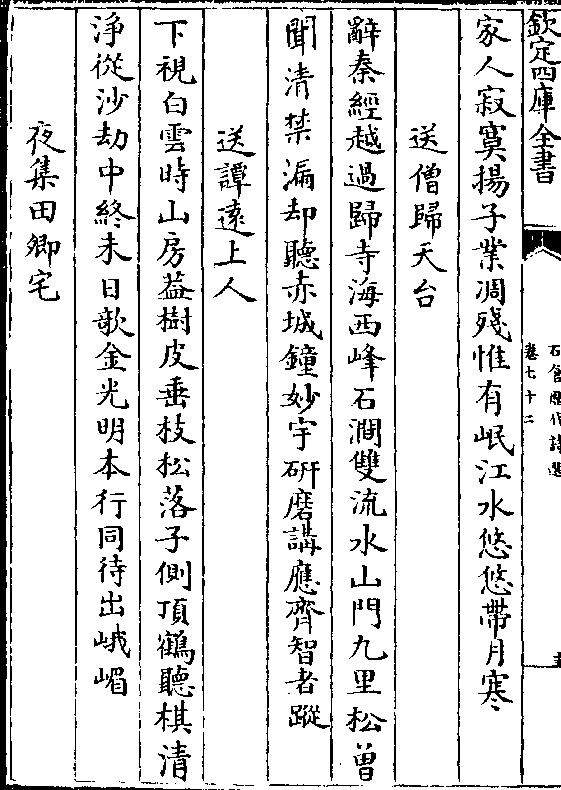 欽定四庫全書
石倉歷代詩選
卷七十二
家人寂寞揚子業凋殘惟有岷江水悠悠帶月寒
送僧歸天台
辭秦經越過歸寺海西峰石澗雙流水山門九里松曽
聞清禁漏却聽赤城鐘妙宇研磨講應齊智者蹤
送譚逺上人
下視白雲時山房葢樹皮垂枝松落子側頂鶴聽棋清
浄從沙劫中終未日欹金光明本行同待出峨嵋
夜集田卿宅